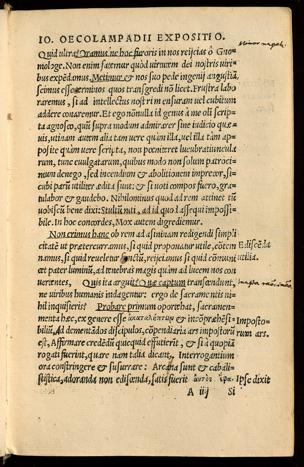 IO. OECOLAMPADII EXPOSITIO.
Quid ultra? Oramus ne hoc furoris in nos reijcias ô Gno-
mologe. Non enim fatemur quòd uirtutem dei nostris uiri-
bus expẽdamus. Metimur & nos suo pede ingenij augustiã,
scimus esse terminos quos transgredi nõ licet. Frustra labo
raremus, si ad intellectus nostri mensuram uel cubitum
addere conaremur. Et ego nonulla id genus à me olim scripta
agnosco, quũ supra modum admirarer sine iudicio quæ-
uis, utinam autem alia tam uere quàm illa, uel illa tam ap-
posite quàm uere scripta, non poeniteret lucubratiuncula
rum, tunc euulgatarum, quibus modo non solum patroci-
nium denego, sed incendium & abolitionem imprecor, si-
cubi parũ utiliter ædita sunt: & si uoti compos fuero, gra-
tulabor & gaudebo. Nihilominus quod ad rem attinet tũ
uobiscũ bene dixit: Stultũ nuti, ad id quod assequi impossi-
bile. In hoc concordes, Mox autem digrediemur.
Non erimus hanc ob rem ad asininam redigendi simpli
citatẽ ut prætereamus, si quid proponatur utile, cõtem Ediscẽda
namus, si quid reueletur sanctũ, reijciamus si quid conuni utilia.
at pater luminũ, ad tenebras magis quàm ad lucem nos con
uertentes, Quis ita arguit? Quæ captum transcendunt,
ne uiribus humanis indagentur: ergo de sacramentis ni-
hil inquisieris? Probare primum oportebat, sacramen-
menta hæc, ex genere esse & incõprehẽsi- Imposto-
biliũ, Ad dementãdos discipulos, cõpendiaria ars impostorũ rum ars.
est, Affirmare credẽdũ quicquid effutierit, & si à quopiã
rogati fuerint, quare nam talia dicant, Interrogantium
ora constringere & susurrare: Arcana sunt & cabali-
stistica, adoranda non edisenda, satis fuerit αὐτὸς ἔφα. Ipse dixit
A iij Si